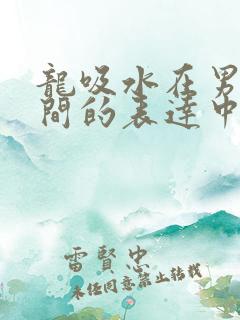 龍吸水在男
間的表達中
雷賢忠
未任同意禁止转载